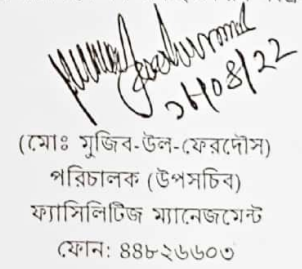 (মোঃ মুজিব-উল-ফেরদৌস)
পরিচালক (উপসচিব)
ফ্যাসিলিটিজ ম্যানেজমেন্ট
ফোন: ৪৪৮২৬৬০৩